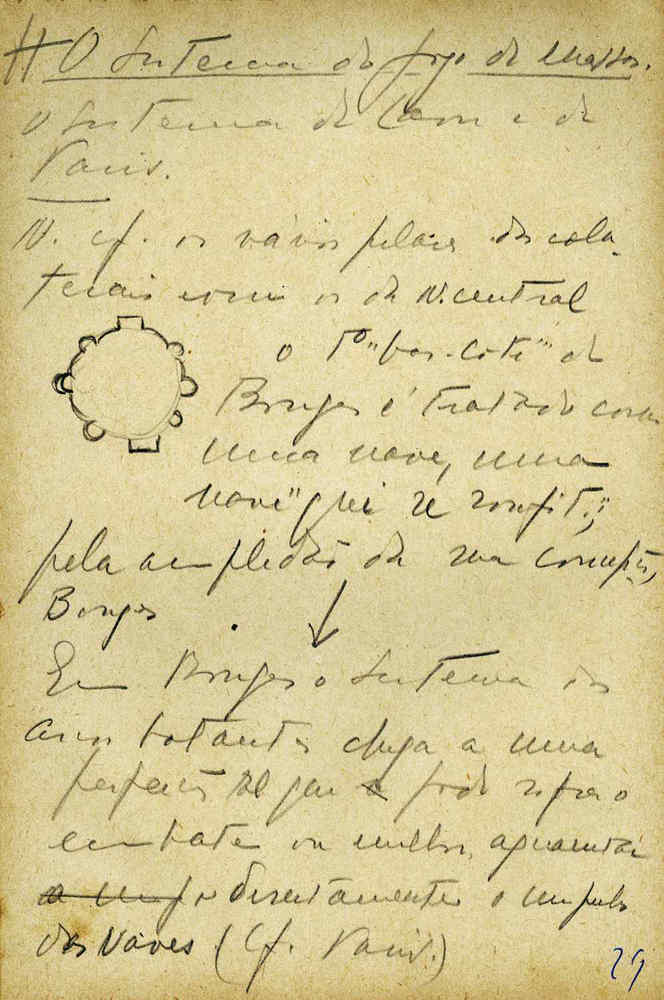 O sistema do jogo de massas.
O sistema de Laon e de
Paris.
N. cf. os vários pilares das cola-
terais com os da N. central
o 1º "bas-coté" de
Bourges é tratado como
uma nave, uma
nave "qui se
pela amplidão da sua
Bourges
Em Bourges o sistema dos
arcos botantes chega a uma
perfeição tal que pode sofrer o
embate ou melhor, aguentar
directamente o impulso
das Naves (Cf. Paris.)
29